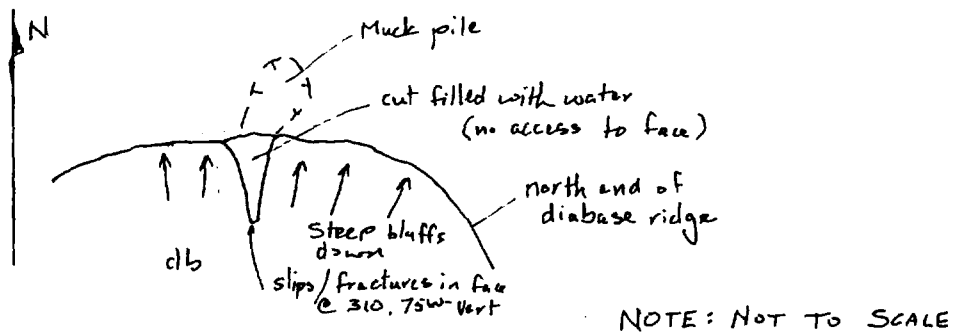 N
Muck pile
cut filled with water
(no access to face)
north end of
diabase ridge
Steep bluffs
down
db
slips/fractures in face
@ 310, 75W-Vert
NOTE: NOT TO SCALE